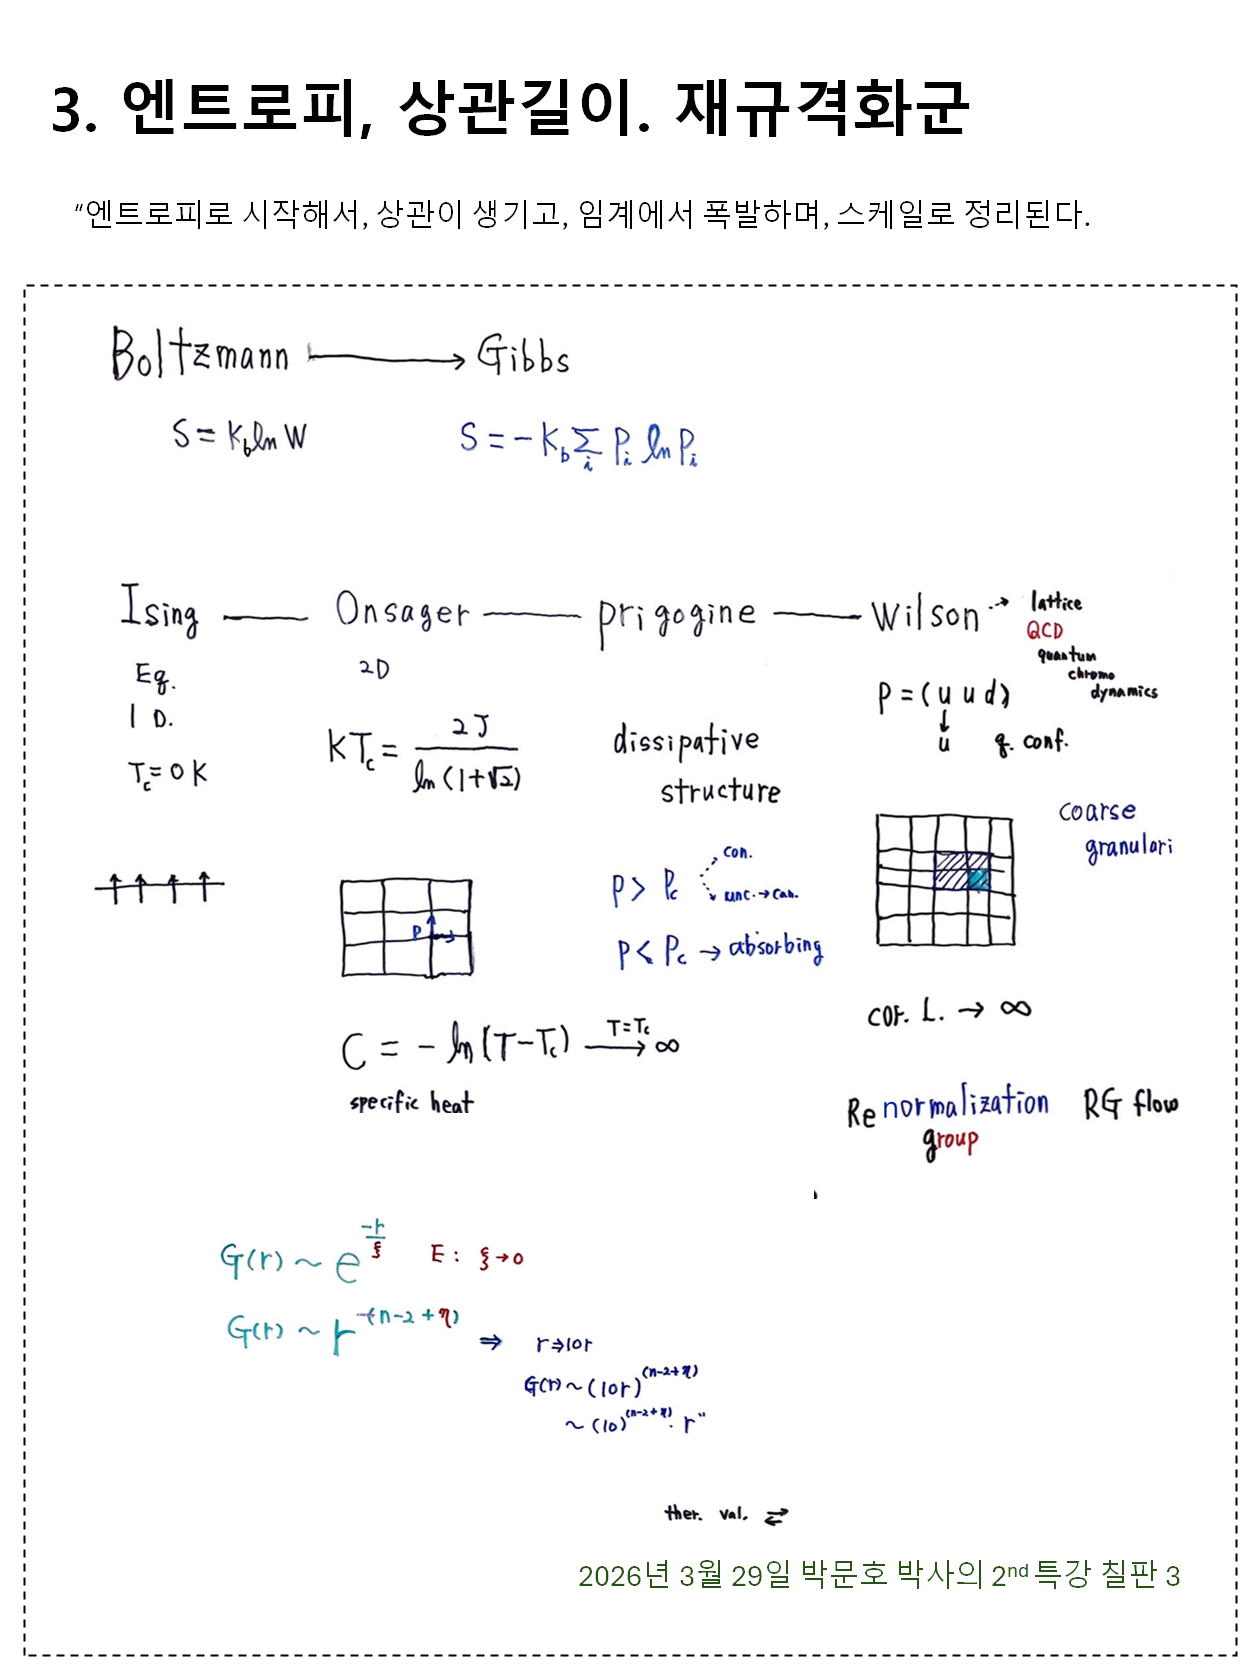 3. 엔트로피, 상관길이. 재규격화군
“엔트로피로 시작해서, 상관이 생기고, 임계에서 폭발하며, 스케일로 정리된다.
Boltzmann → Gibbs
S = K_b ln W
S = - K_b Σ_i P_i ln P_i
Ising — Onsager — prigogine — Wilson ⇢ lattice
QCD
quantum
chromo
dynamics
Eq.
1 D.
T_c = 0 K
2D
KT_c = 2J / ln(1+√2)
dissipative
structure
P = (u u d)
↓
u
q. conf.
coarse
granulari
P > P_c
con.
unc. → can.
P < P_c → absorbing
P
C = - ln(T - T_c) → ∞
T=T_c
specific heat
cor. L. → ∞
Renormalization
group
RG flow
G(r) ~ e^(-r/ξ)
E : ξ → 0
G(r) ~ r^-(n-2+η) ⇒
r ⇒ 10r
G(r) ~ (10r)^(n-2+η)
~ (10)^(n-2+η) · r^"
ther. val. ⇄
2026년 3월 29일 박문호 박사의 2nd 특강 칠판 3